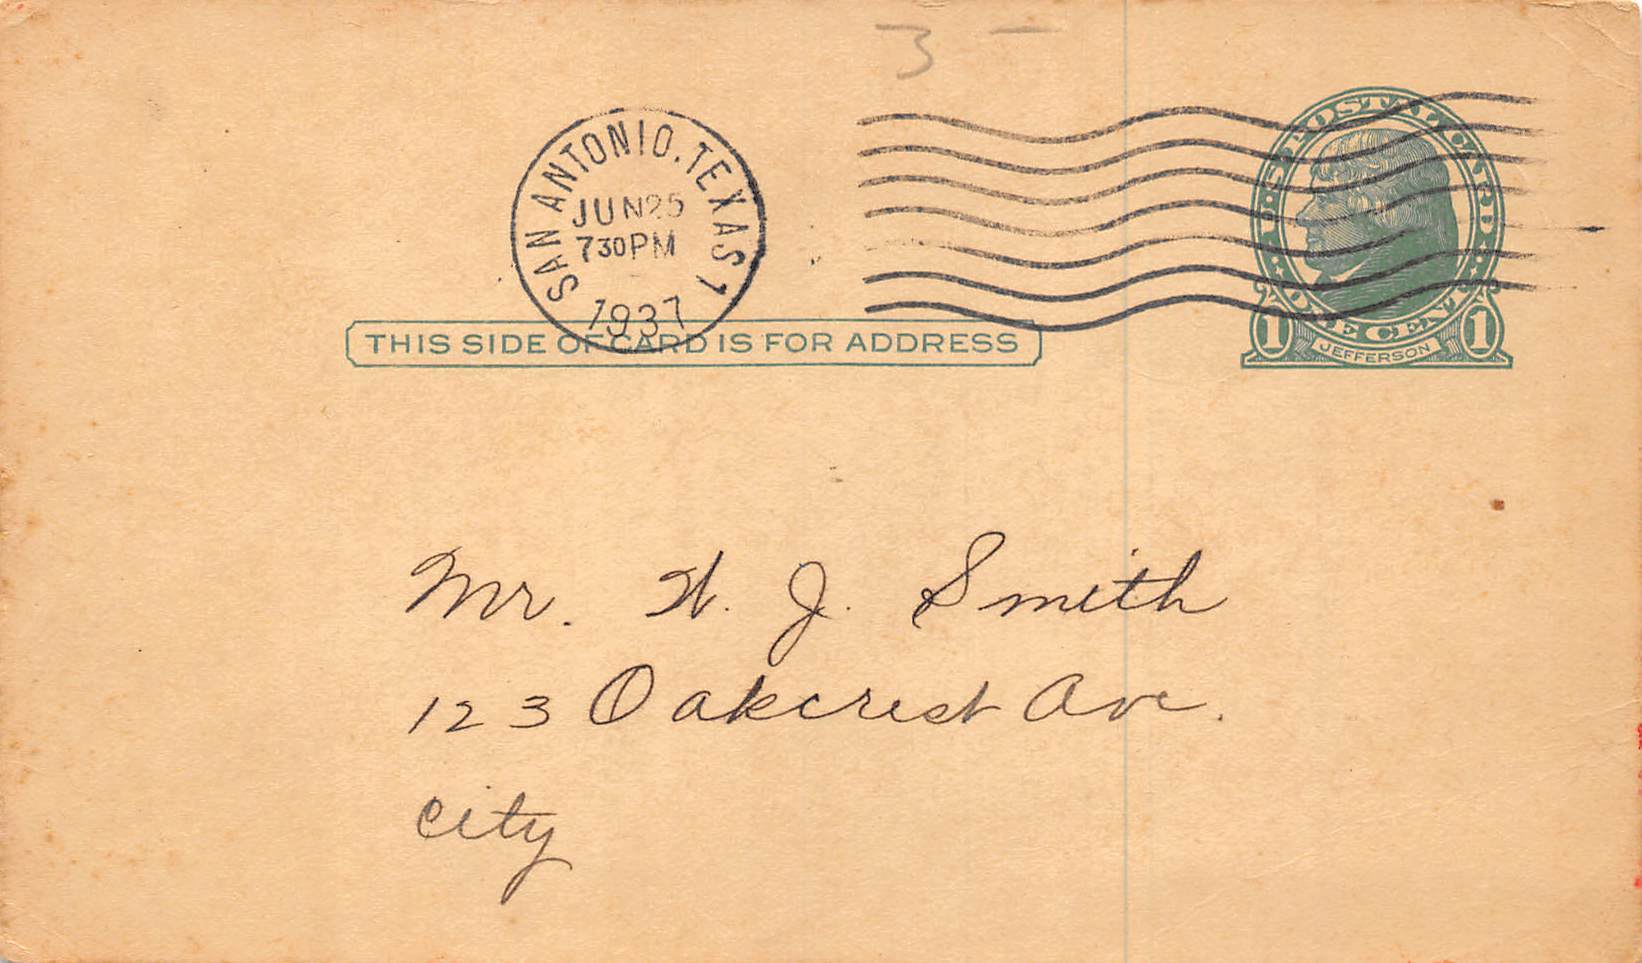 3 –
SAN ANTONIO, TEXAS 1
JUN 25
7 30 PM
1937
U·S·POSTAL CARD
ONE CENT
1 JEFFERSON 1
THIS SIDE OF CARD IS FOR ADDRESS
Mr. W. J. Smith
123 Oakcrest Ave.
City